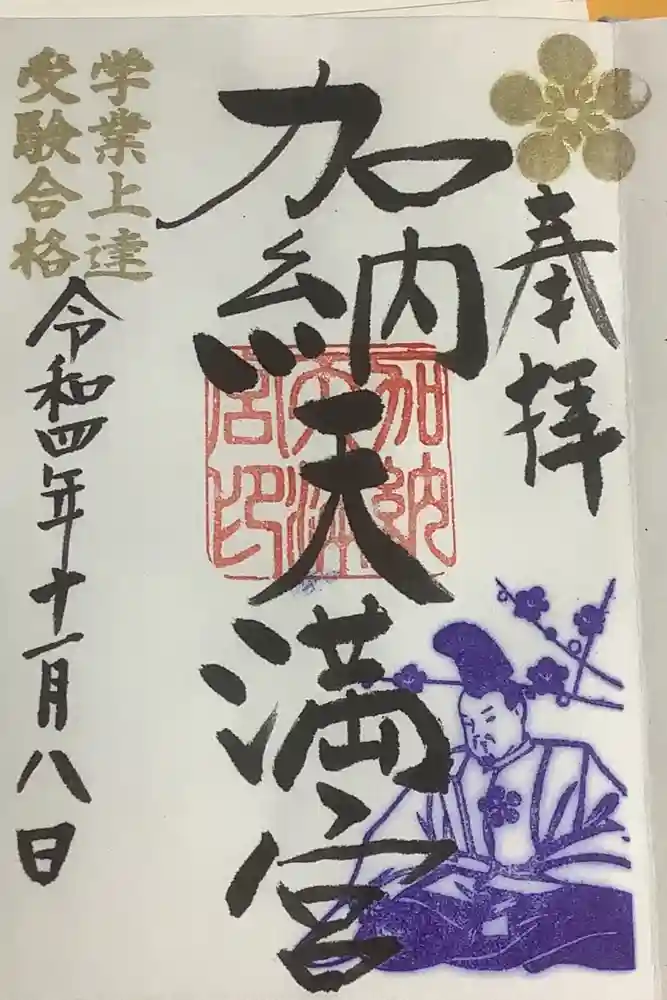 奉拝
加納天満宮
加納天満宮印
学業上達
受験合格
令和四年十一月八日